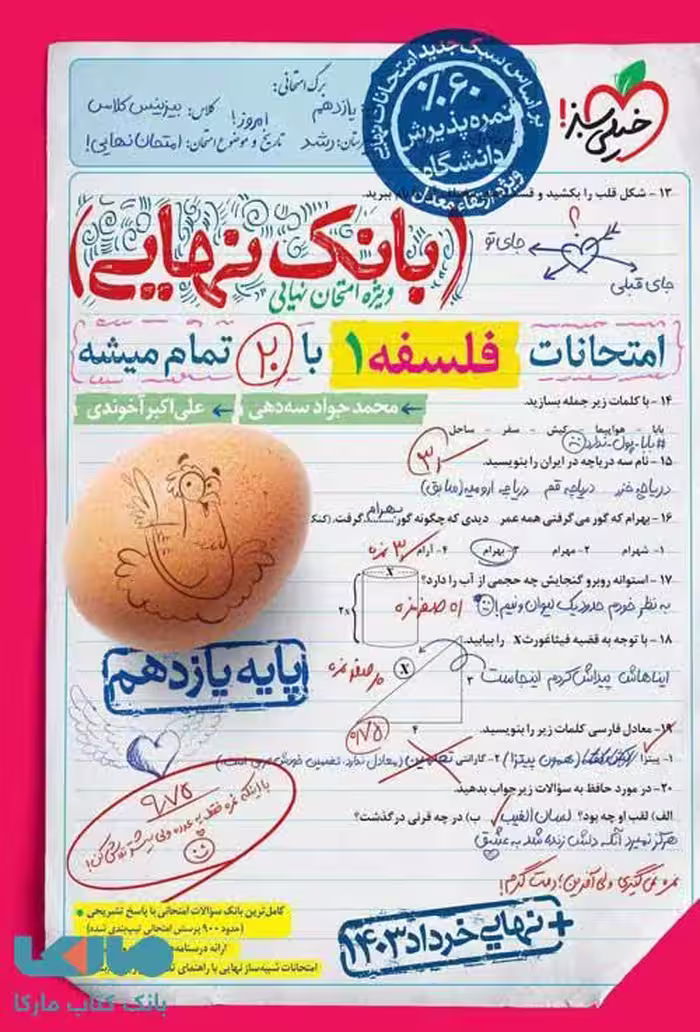 برگ امتحانی:
یازدهم
کلاس: بیزینس کلاس
امروز!
رشد
تاریخ و موضوع امتحان: امتحان نهایی!
براساس سبک جدید امتحانات نهایی
%۶۰
نمره پذیرش
دانشگاه
ویژه ارتقاء معدل
خیلی سبز!
۱۳ - شکل قلب را بکشید و
ببرید.
(بانک نهایی)
ویژه امتحان نهایی
؟
جای تو
جای قبلی
امتحانات فلسفه ۱ با ۲۰ تمام میشه
محمدجواد سه‌دهی
علی‌اکبر آخوندی
۱۴ - با کلمات زیر جمله بسازید.
بابا - هواپیما - کیش - سفر - ساحل
#بابا_پول_ندارد
۱۵ - نام سه دریاچه در ایران را بنویسید.
دریاچه خزر دریاچه قم دریاچه ارومیه (سابق)
۱۶ - بهرام که گور می‌گرفتی همه عمر دیدی که چگونه گور بهرام گرفت،
۱- شهرام ۲- مهرام ۳- بهرام ۴- آرام
۱۷ - استوانه روبرو گنجایش چه حجمی از آب را دارد؟
X
۲x
به نظر خودم حدود یک لیوان و نیم!
۱۸ - با توجه به قضیه فیثاغورث X را بیابید.
X
۳
۴
ایناهاش پیداش کردم اینجاست
پایه یازدهم
۱۹- معادل فارسی کلمات زیر را بنویسید.
۱- پیتزا (همون پیتزا) ۲- گارانتی
۲۰- در مورد حافظ به سؤالات زیر جواب بدهید.
الف) لقب او چه بود؟ لسان الغیب ب) در چه قرنی درگذشت؟
هرگز نمیرد آنکه دلش زنده شد به عشق
نمره نمی‌گیری ولی آفرین! دمت گرم!
+ نهایی خرداد ۱۴۰۳
کامل‌ترین بانک سؤالات امتحانی با پاسخ تشریحی
(حدود ۹۰۰ پرسش امتحانی تیپ‌بندی شده)
ارائه درسنامه‌
امتحانات شبیه‌ساز نهایی با راهنمای
مارکا
بانک کتاب مارکا